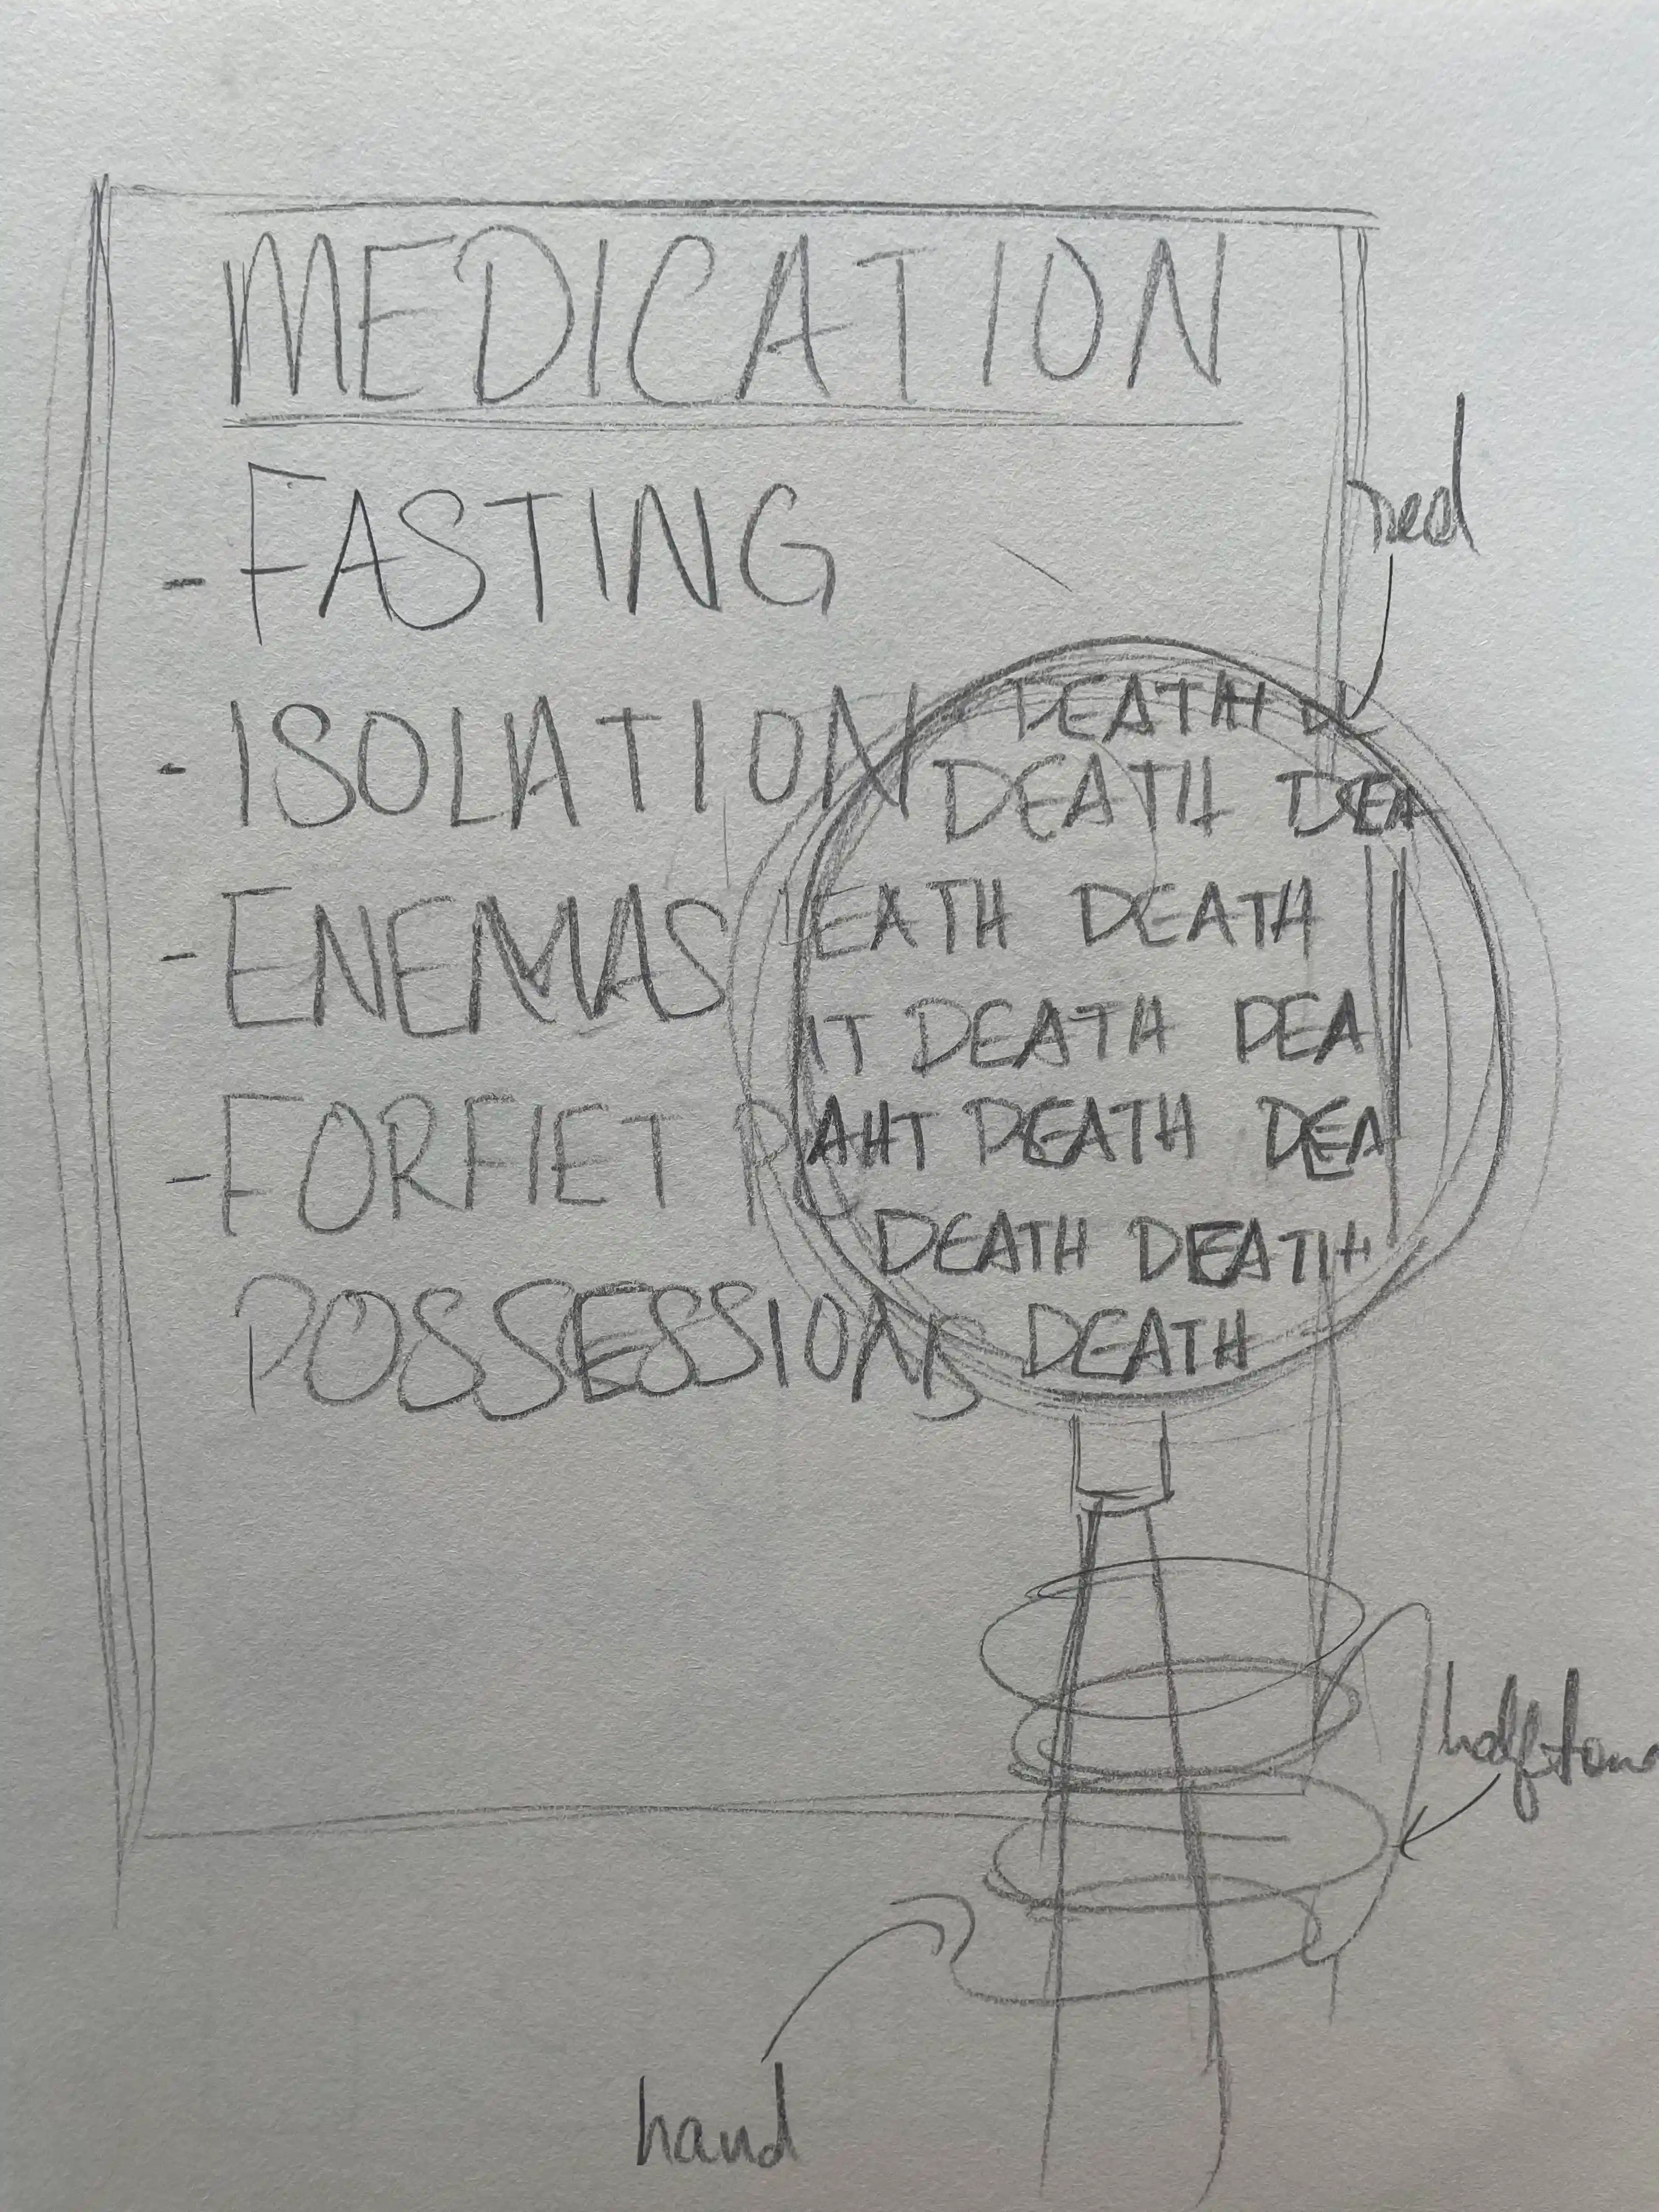 MEDICATION
- FASTING
- ISOLATION
- ENEMAS
- FORFIET
POSSESSIONS
red
DEATH DE
DEATH DEA
EATH DEATH
DEATH DEA
AHT DEATH DEA
DEATH DEATH
DEATH
halftone
hand